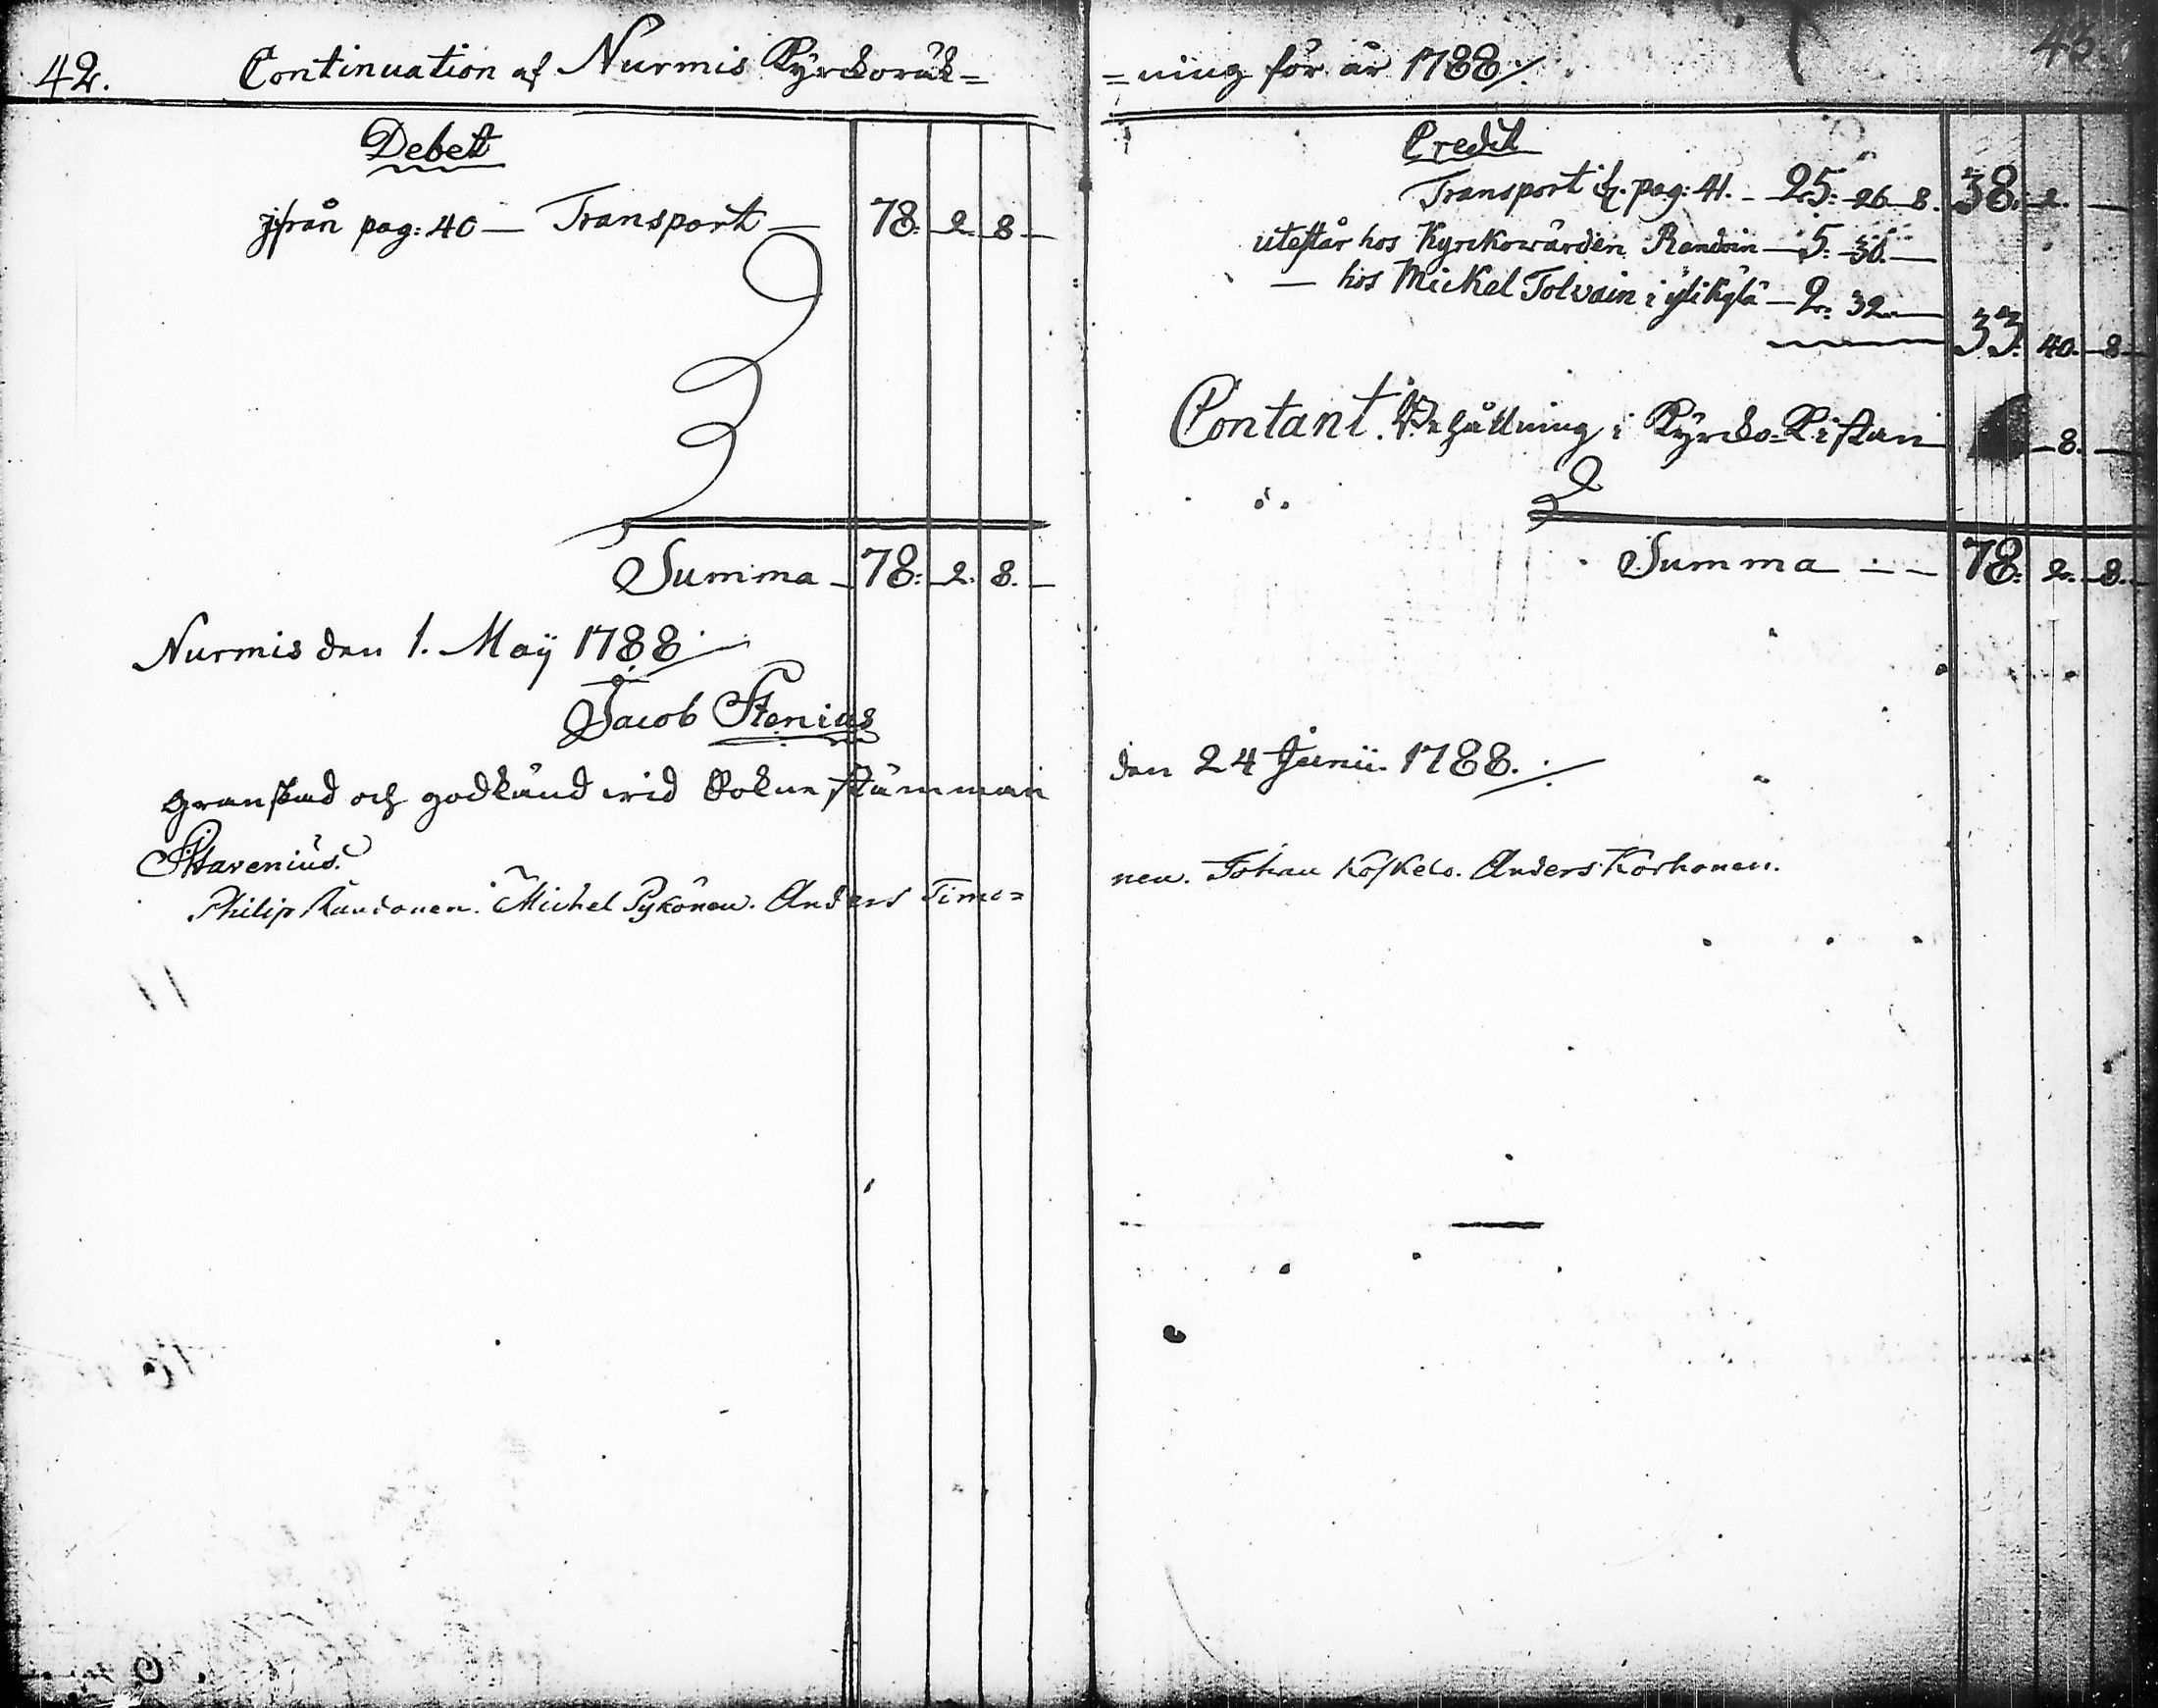 42. Continuation af Nurmis Kyrckoräk=
Debet
ifrån pag: 40 — Transport — 78. 2. 8. —
Summa — 78: 2. 8. —
Nurmis den 1. Maij 1788
Jacob Stenius
granskad och godkänd wid Sokne stämman
Philip Rundonen. Michel Pykönen. Anders Timo=
43.
=ning för år 1788
Credit
Transport fr. pag: 41. — 25: 26 8. 38: 2. —
utestår hos Kyrkowärden Randoin — 5. 30. —
— hos Mickel Tolvain i ylikylä — 2: 32 —
33. 40. 8
Contant Behållning i Kyrcko-Kistan 8. —
Summa — 78: 2. 8.
den 24 Junii 1788.
nen. Johan Koskelo. Anders Korhonen.